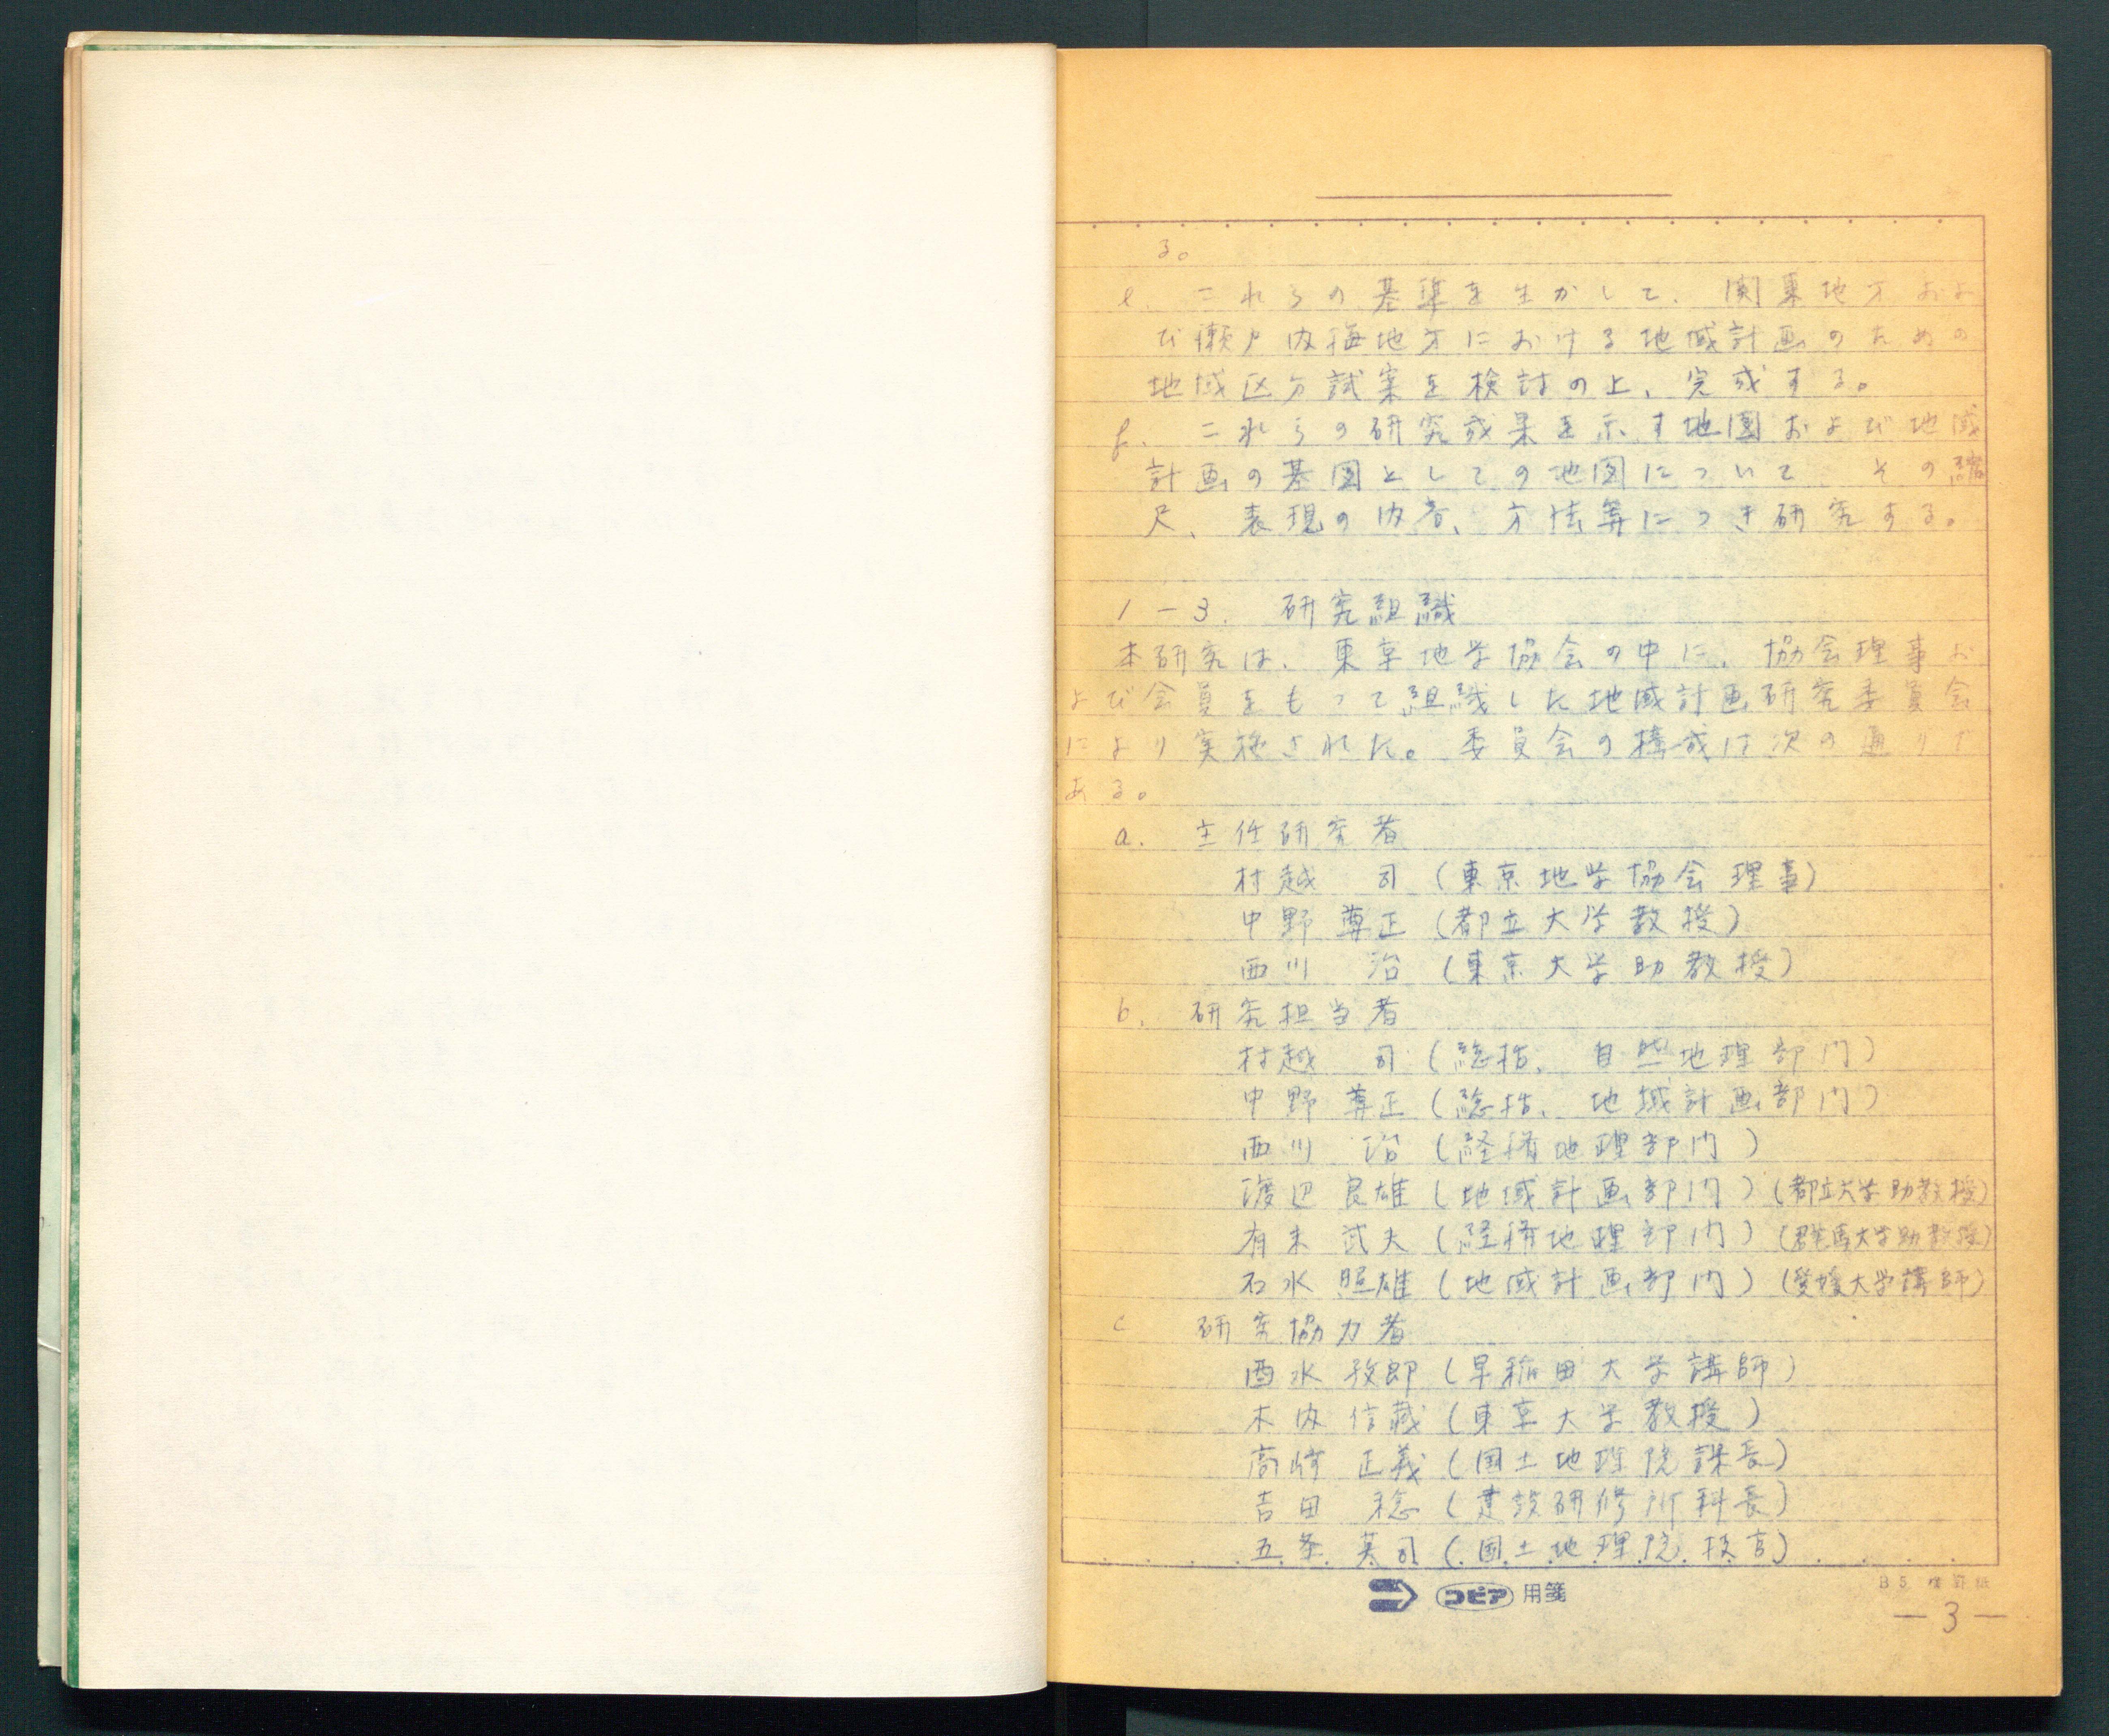 る。
e. これらの基準を生かして、関東地方およ
び瀬戸内海地方における地域計画のための
地域区分試案を検討の上、完成する。
f. これらの研究成果を示す地図および地域
計画の基図としての地図について、その縮
尺、表現の内容、方法等につき研究する。
1-3. 研究組織
本研究は、東京地学協会の中に、協会理事お
よび会員をもって組織した地域計画研究委員会
により実施された。委員会の構成は次の通りで
ある。
a. 主任研究者
村越 司 (東京地学協会理事)
中野 尊正 (都立大学教授)
西川 治 (東京大学助教授)
b. 研究担当者
村越 司 (総括、自然地理部門)
中野 尊正 (総括、地域計画部門)
西川 治 (経済地理部門)
渡辺 良雄 (地域計画部門) (都立大学助教授)
有末 武夫 (経済地理部門) (群馬大学助教授)
石水 照雄 (地域計画部門) (愛媛大学講師)
c 研究協力者
酉水 孜郎 (早稲田大学講師)
木内 信蔵 (東京大学教授)
高崎 正義 (国土地理院課長)
吉田 稔 (建設研修所科長)
五条 英司 (国土地理院技官)
コピア 用箋
B5 横罫紙
—3—